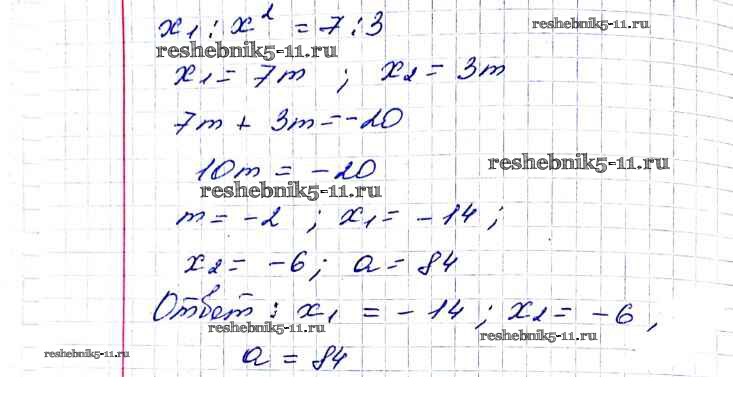 x₁ : x² = 7 : 3
reshebnik5-11.ru
reshebnik5-11.ru
x₁ = 7m ; x₂ = 3m
7m + 3m = -20
10m = -20
reshebnik5-11.ru
reshebnik5-11.ru
m = -2 ; x₁ = -14 ;
x₂ = -6 ; a = 84
Ответ : x₁ = -14 ; x₂ = -6 ,
reshebnik5-11.ru
reshebnik5-11.ru
a = 84
reshebnik5-11.ru